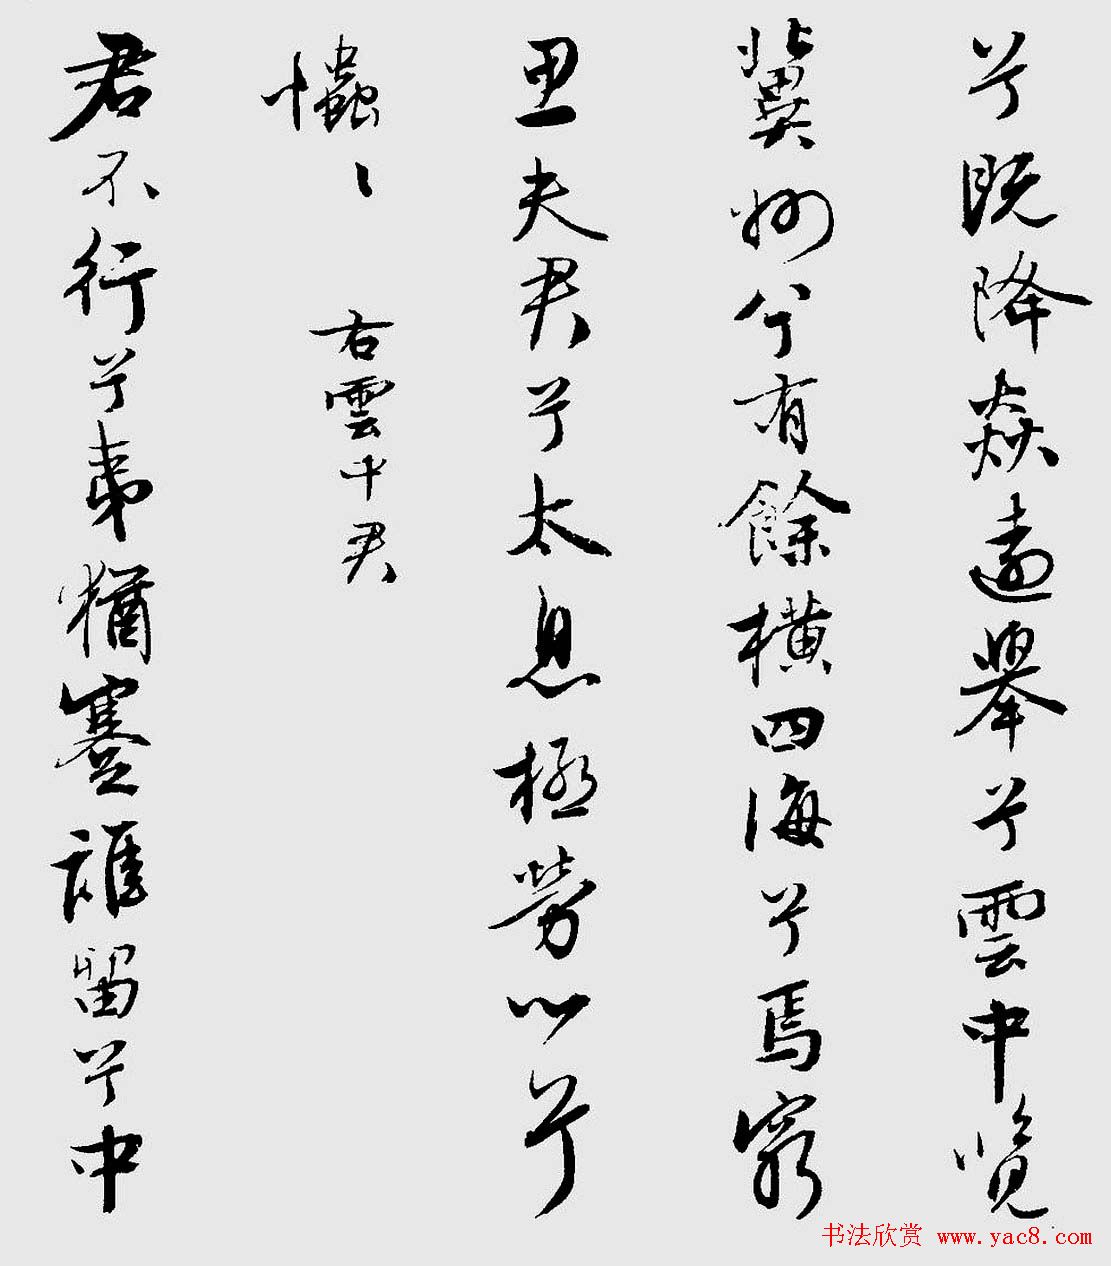 兮既降焱遠舉兮雲中覽
冀州兮有餘橫四海兮焉窮
思夫君兮太息極勞心兮
忡〻
右雲中君
君不行兮夷猶蹇誰留兮中
书法欣赏 www.yac8.com